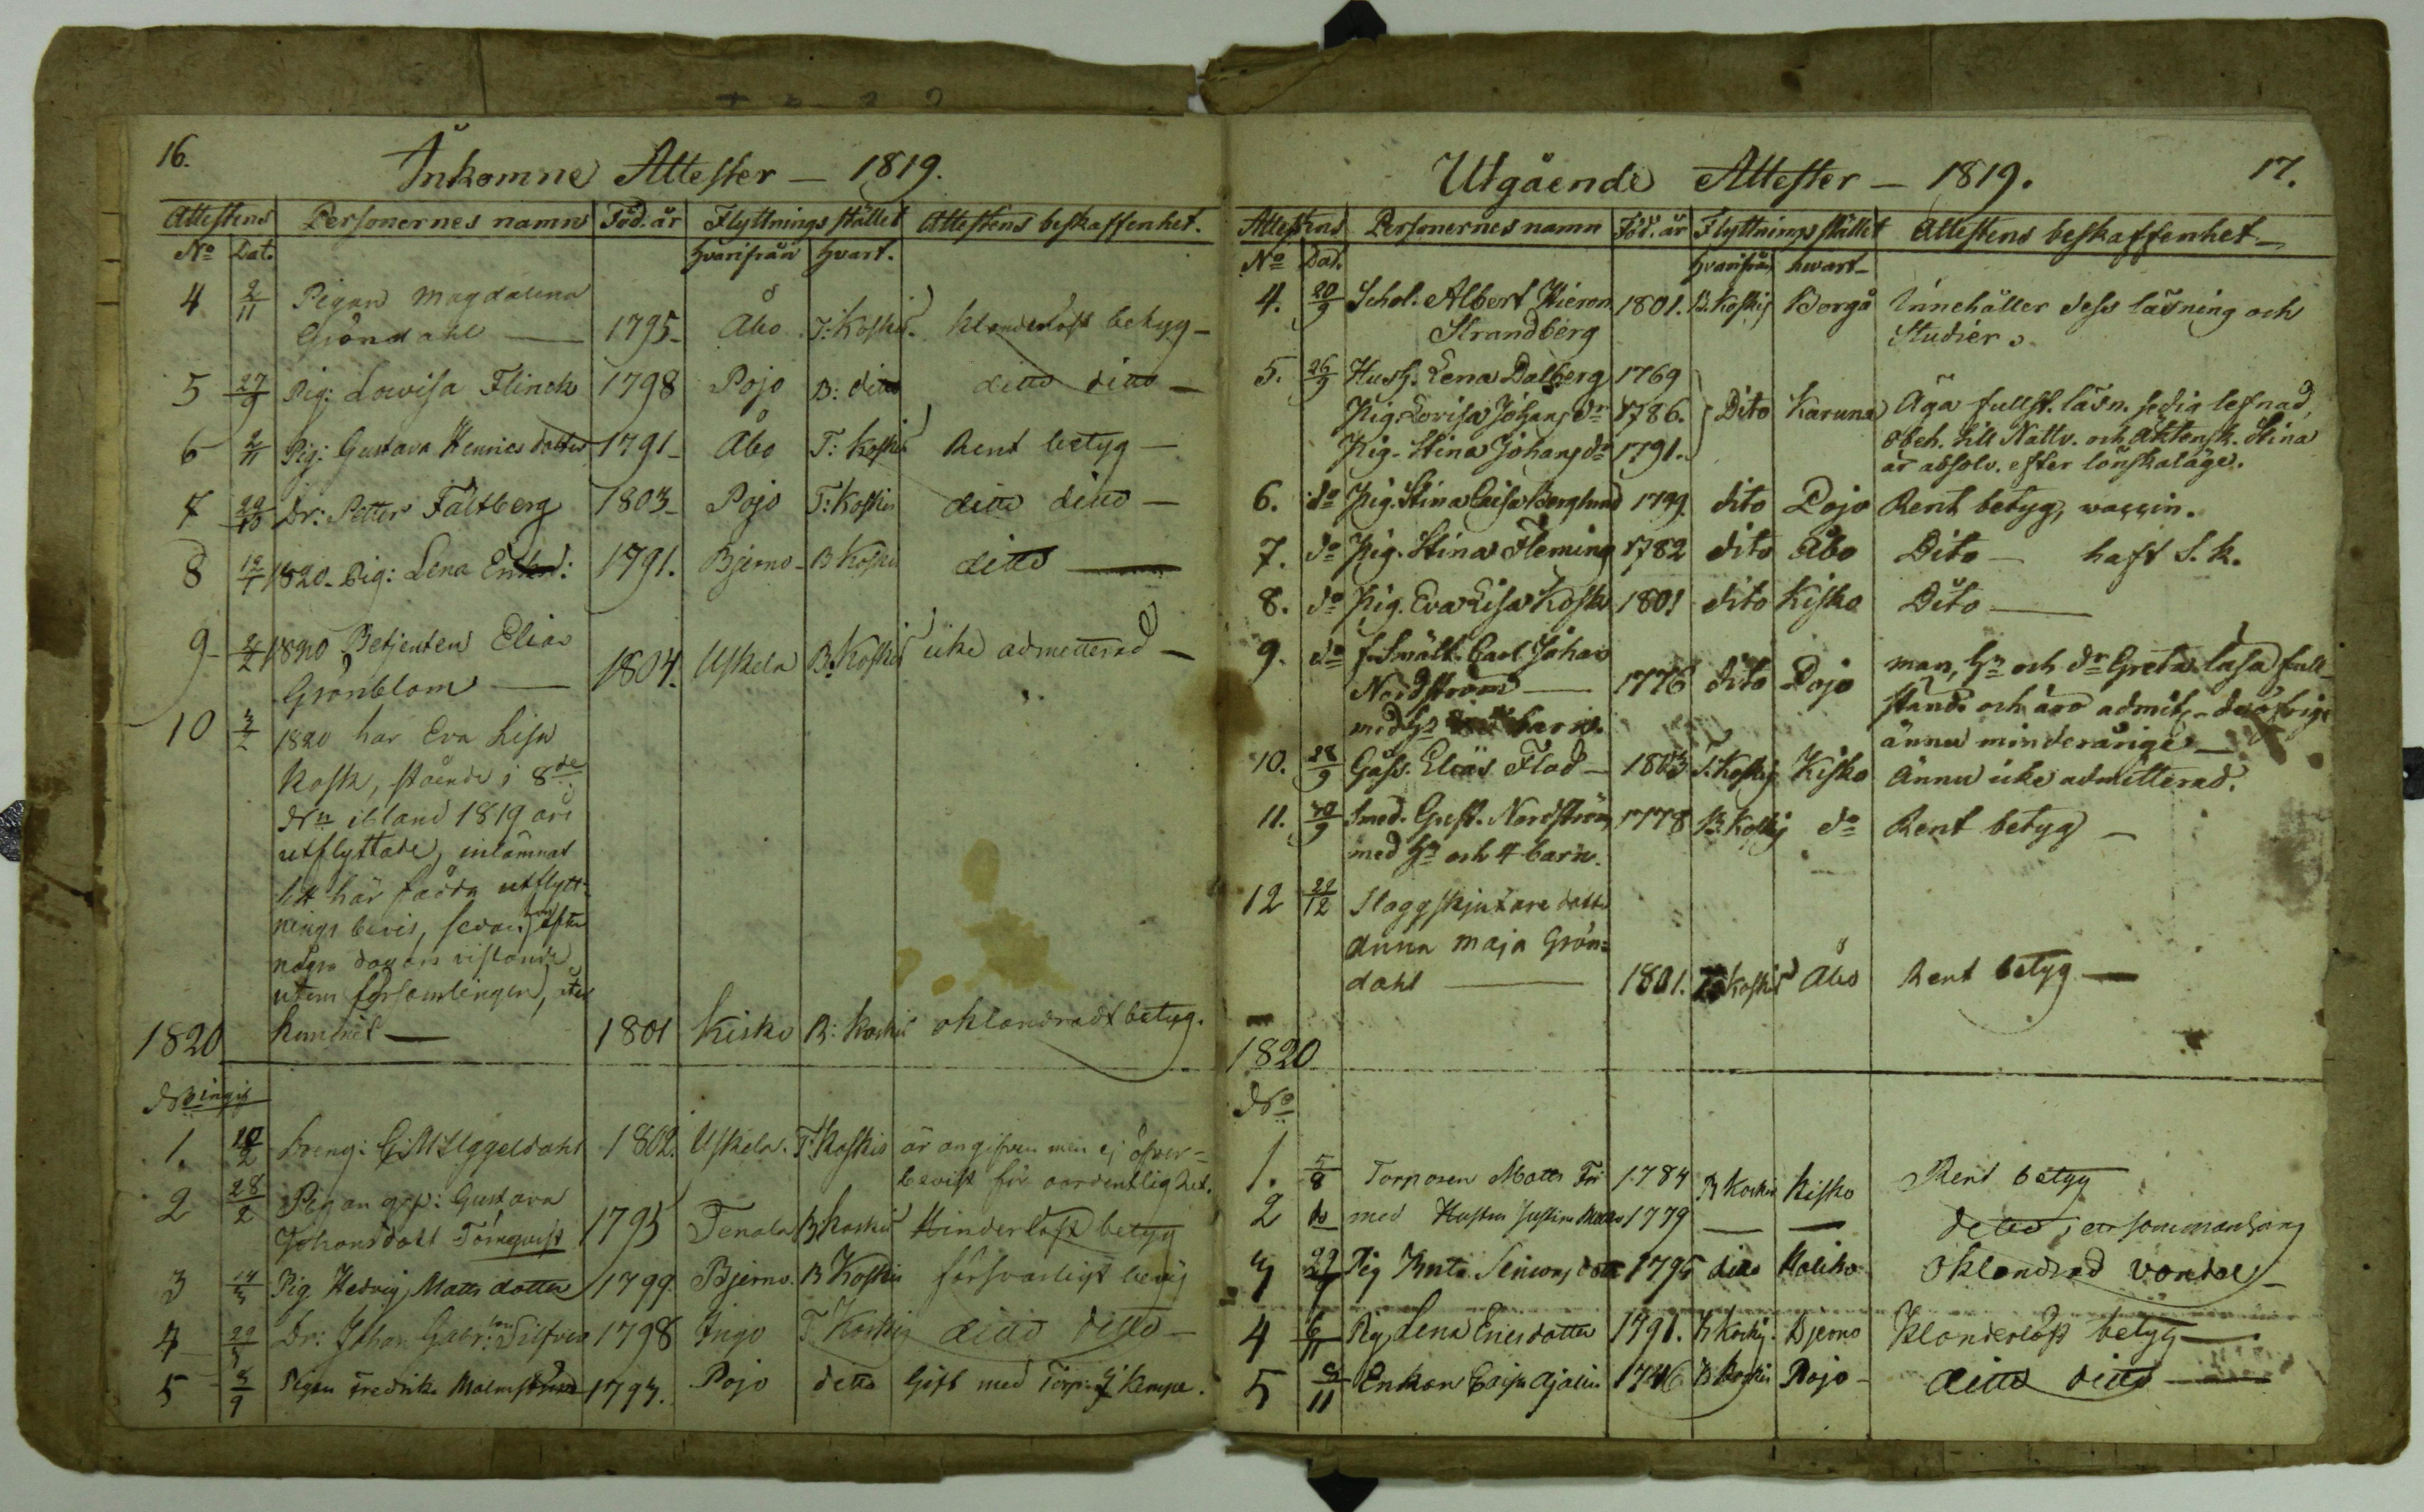 16.
Inkomne Attester — 1819.
Attestens Personernes namn Föd. år Flyttnings stället Attestens beskaffenhet.
No Dat. hvarifrån hvart.
4 2/11 Pigan Magdalena
Gröndahl — 1795- Åbo T: Koskis klanderlöst betyg -
5 27/9 Pig: Lovisa Flinck 1798 Pojo B: ditto ditto ditto -
6 2/11 Pig: Gustava Henricsdotter 1791- Åbo T: Koskis Rent betyg -
7 22/10 Dr: Petter Fältberg 1803- Pojo T: Koskis ditto ditto -
8 12/1 1820- Pig: Lena 1791. Bjerno- B Koskis ditto —
9- 2/2 1820 Betjenten Elias
Grönblom — 1804. Uskela B. Koskis icke admitterad -
10 1820 har Eva Lisa
Kosk, stående i 8de
No ibland 1819 års
utflyttade, inlämnat
sitt här fådda utflytt-
nings bevis, sedan hon efter
några dagars vistande
utom församlingen, åter
kommit — 1801 Kisko B: Koskis oklandradt betyg.
1820
No ingis
1. 10/2 Dreng: Uggeldahl 1802. Uskela. T: Koskis är angifven men ej öfver=
bevist för oordentlighet.
2 28/2 Pigan Gustava
Johansdott Törnqvist 1795 Tenala B Koskis Hinderlöst betyg
3 Pig Hedvig Matts dotter 1799. Bjerno. B Koskis försvarligt betyg
4 Dr: Johan Gabr: Silfver 1798 Ingo T Koskis ditto ditto -
5 Pigan Fredrika 1797. Pojo ditto Gift med Torp: Kempe.
17.
Utgående Attester — 1819.
Attestens Personernes namn Föd. år Flyttnings stället Attestens beskaffenhet -
No Dat. hvarifrån hwart -
4. 20/9 Schol. Albert Hieron. 1801. B. Koskis Borgå Innehåller dess läsning och
Strandberg Studier.
5. 26/9 Hush. Lena Dalberg 1769
Pig. Lovisa Johans dr 1786. Dito Karuna Äga fullst. läsn. sedig lefnad,
Pig. Stina Johans dr 1791. obeh. till Nattv. och Äktensk. Stina
är absolv. efter lönskaläge.
6. do Pig. Stina Caisa Berglund 1799 dito Pojo Rent betyg, vaccin.
7. do Pig. Stina Fleming 1782 dito Åbo Dito — haft S. k.
8. do Pig. Eva Lisa Kosk 1801 dito Kisko Dito —
9. do f. Smält. Carl Johan man, hu och dr Greta läsa full-
Nordström — 1776 dito Pojo ständ. och äro admitt. de öfrige
med hu barn. ännu minderårige —
10. 28/9 Goss. Elias Flod - 1803 T. Koskis Kisko Ännu icke admitterad.
11. 30/9 Smed. Gust. Nordström 1778 B. Koskis do Rent betyg -
med hu och 4 barn.
12 22/12 Slaggskjutare dotter
Anna Maja Grön=
dahl — 1801. Koskis Åbo Rent betyg —
1820
No
1. 5/8 Torparen Matts 1784 B Koskis Kisko Rent betyg
2 do med Hustru Justina 1779 — — ditto, en sammanhang
3 Pig Simonsdott 1795 ditto Haliko Oklandrad vandel -
4 6/11 Pig Lena Ericsdotter 1791. B Koskis Bjerno Klanderlöst betyg —
5 Enkan Caisa Ajalin 1746 B Koskis Pojo - ditto ditto —